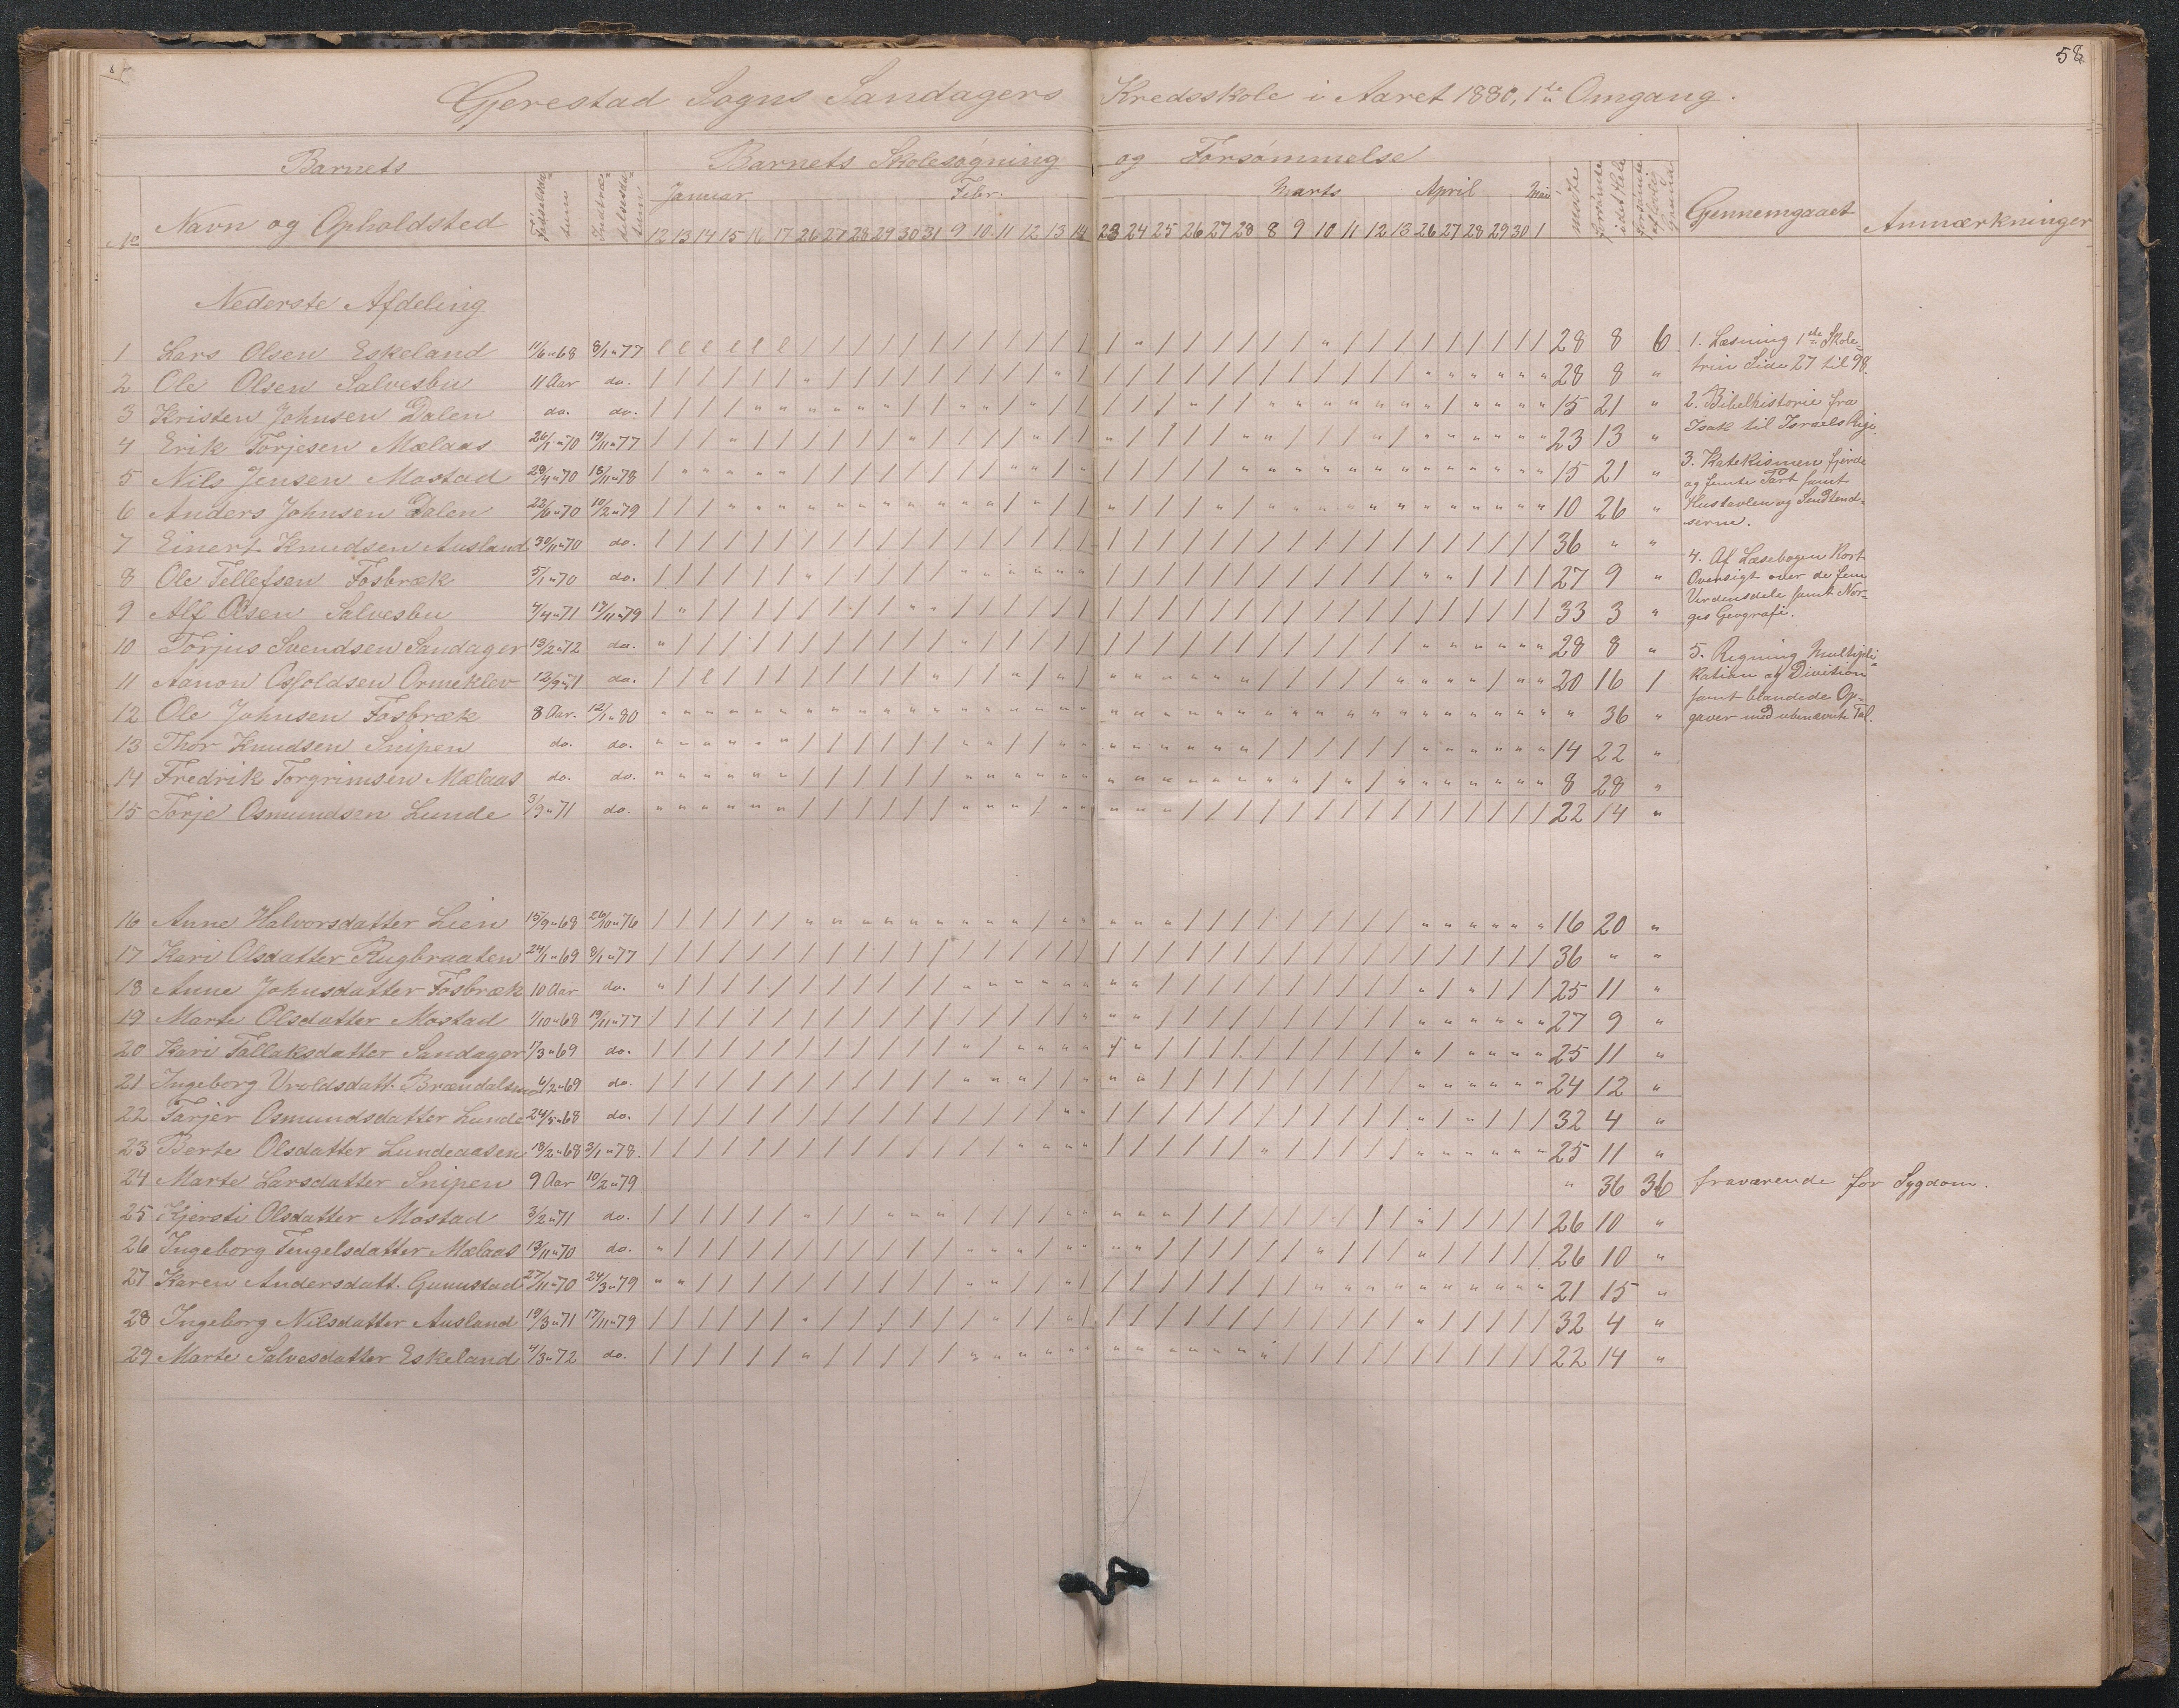 58
Gjerestad Sogns Sandagers Kredsskole i Aaret 1880, 1ste Omgang.
Barnets Barnets Skolesøgning og Forsømmelse
No Navn og Opholdsted Fødselsdatum Indtrædelsesdatum Januar Febr. Marts April Mai mødte forsømte i det Hele forsømte af lovlig Grund Gjennemgaaet Anmærkninger
12 13 14 15 16 17 26 27 28 29 30 31 9 10 11 12 13 14 23 24 25 26 27 28 8 9 10 11 12 13 26 27 28 29 30 1
Nederste Afdeling
1 Lars Olsen Eskeland 11/6 " 68 8/1 " 77 l l l l l l / / / / / / / / / / / / / " / / / / / / " / / / / / / / / / 28 8 6
2 Ole Olsen Salvesbu 11 Aar do. 28 8 "
3 Kristen Johnsen Dalen do. do. 15 21 "
4 Erik Torjesen Mælaas 26/1 " 70 19/11 " 77 23 13 "
5 Nils Jensen Mostad 29/4 " 70 18/11 " 78 15 21 "
6 Anders Johnsen Dalen 22/6 " 70 10/2 " 79 10 26 "
7 Einert Knudsen Ausland 30/11 " 70 do. 36 " "
8 Ole Tellefsen Fosbræk 5/1 " 70 do. 27 9 "
9 Alf Olsen Salvesbu 4/4 " 71 17/11 " 79 33 3 "
10 Torjus Svendsen Sandager 13/2 " 72 do. 28 8 "
11 Aanon Osfoldsen Ormeklev 12/9 " 71 do. 20 16 1
12 Ole Johnsen Fosbræk 8 Aar. 12/1 " 80 " 36 "
13 Thor Knudsen Snipen do. do. 14 22 "
14 Fredrik Torgrimsen Mælaas do. do. 8 28 "
15 Torje Osmundsen Lunde 3/9 " 71 do. 22 14 "
1. Læsning 1ste Skole-
trin Side 27 til 98.
2. Bibelhistorie fra
Isak til Israels Rige.
3. Katekismen fjerde
og femte Part samt
Hustavlen og
4. Af Læsebogen Kort
Oversigt over de fem
Verdensdele samt Nor-
ges Geografi.
5. Regning Multipli-
kation og Division
samt blandede Op-
gaver med ubenævnte Tal.
16 Anne Halvorsdatter Lien 15/9 " 68 26/10 " 76 16 20 "
17 Kari Olsdatter Rugbraaten 24/1 " 69 8/1 " 77 36 " "
18 Anne Johnsdatter Fosbræk 10 Aar do. 25 11 "
19 Marte Olsdatter Mostad 1/10 " 68 19/11 " 77 27 9 "
20 Kari Tallaksdatter Sandager 17/3 " 69 do. 25 11 "
21 Ingeborg Vroldsdatt. Brændalsmo 4/2 " 69 do. 24 12 "
22 Tarjer Osmundsdatter Lunde 24/5 " 68 do. 32 4 "
23 Berte Olsdatter Lundeaasen 18/2 " 68 3/1 " 78. 25 11 "
24 Marte Larsdatter Snipen 9 Aar 10/2 " 79 " 36 36 fraværende for Sygdom.
25 Kjersti Olsdatter Mostad 3/2 " 71 do. 26 10 "
26 Ingeborg Tengelsdatter Mælaas 13/11 " 70 do. 26 10 "
27 Karen Andersdatt. Gunnstad 27/11 " 70 24/3 " 79 21 15 "
28 Ingeborg Nilsdatter Ausland 19/3 " 71 17/11 " 79 32 4 "
29 Marte Salvesdatter Eskeland 4/3 " 72 do. 22 14 "